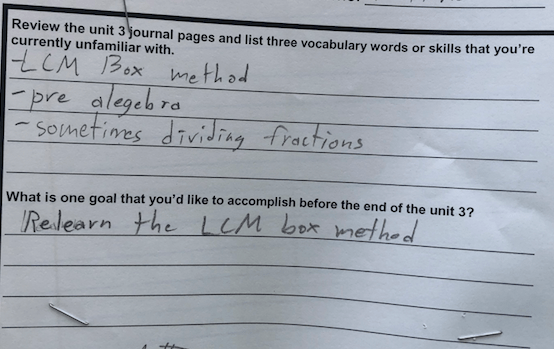 Review the unit 3 journal pages and list three vocabulary words or skills that you're
currently unfamiliar with.
-LCM Box method
-pre alegebra
-sometimes dividing fractions
What is one goal that you'd like to accomplish before the end of the unit 3?
Relearn the LCM box method